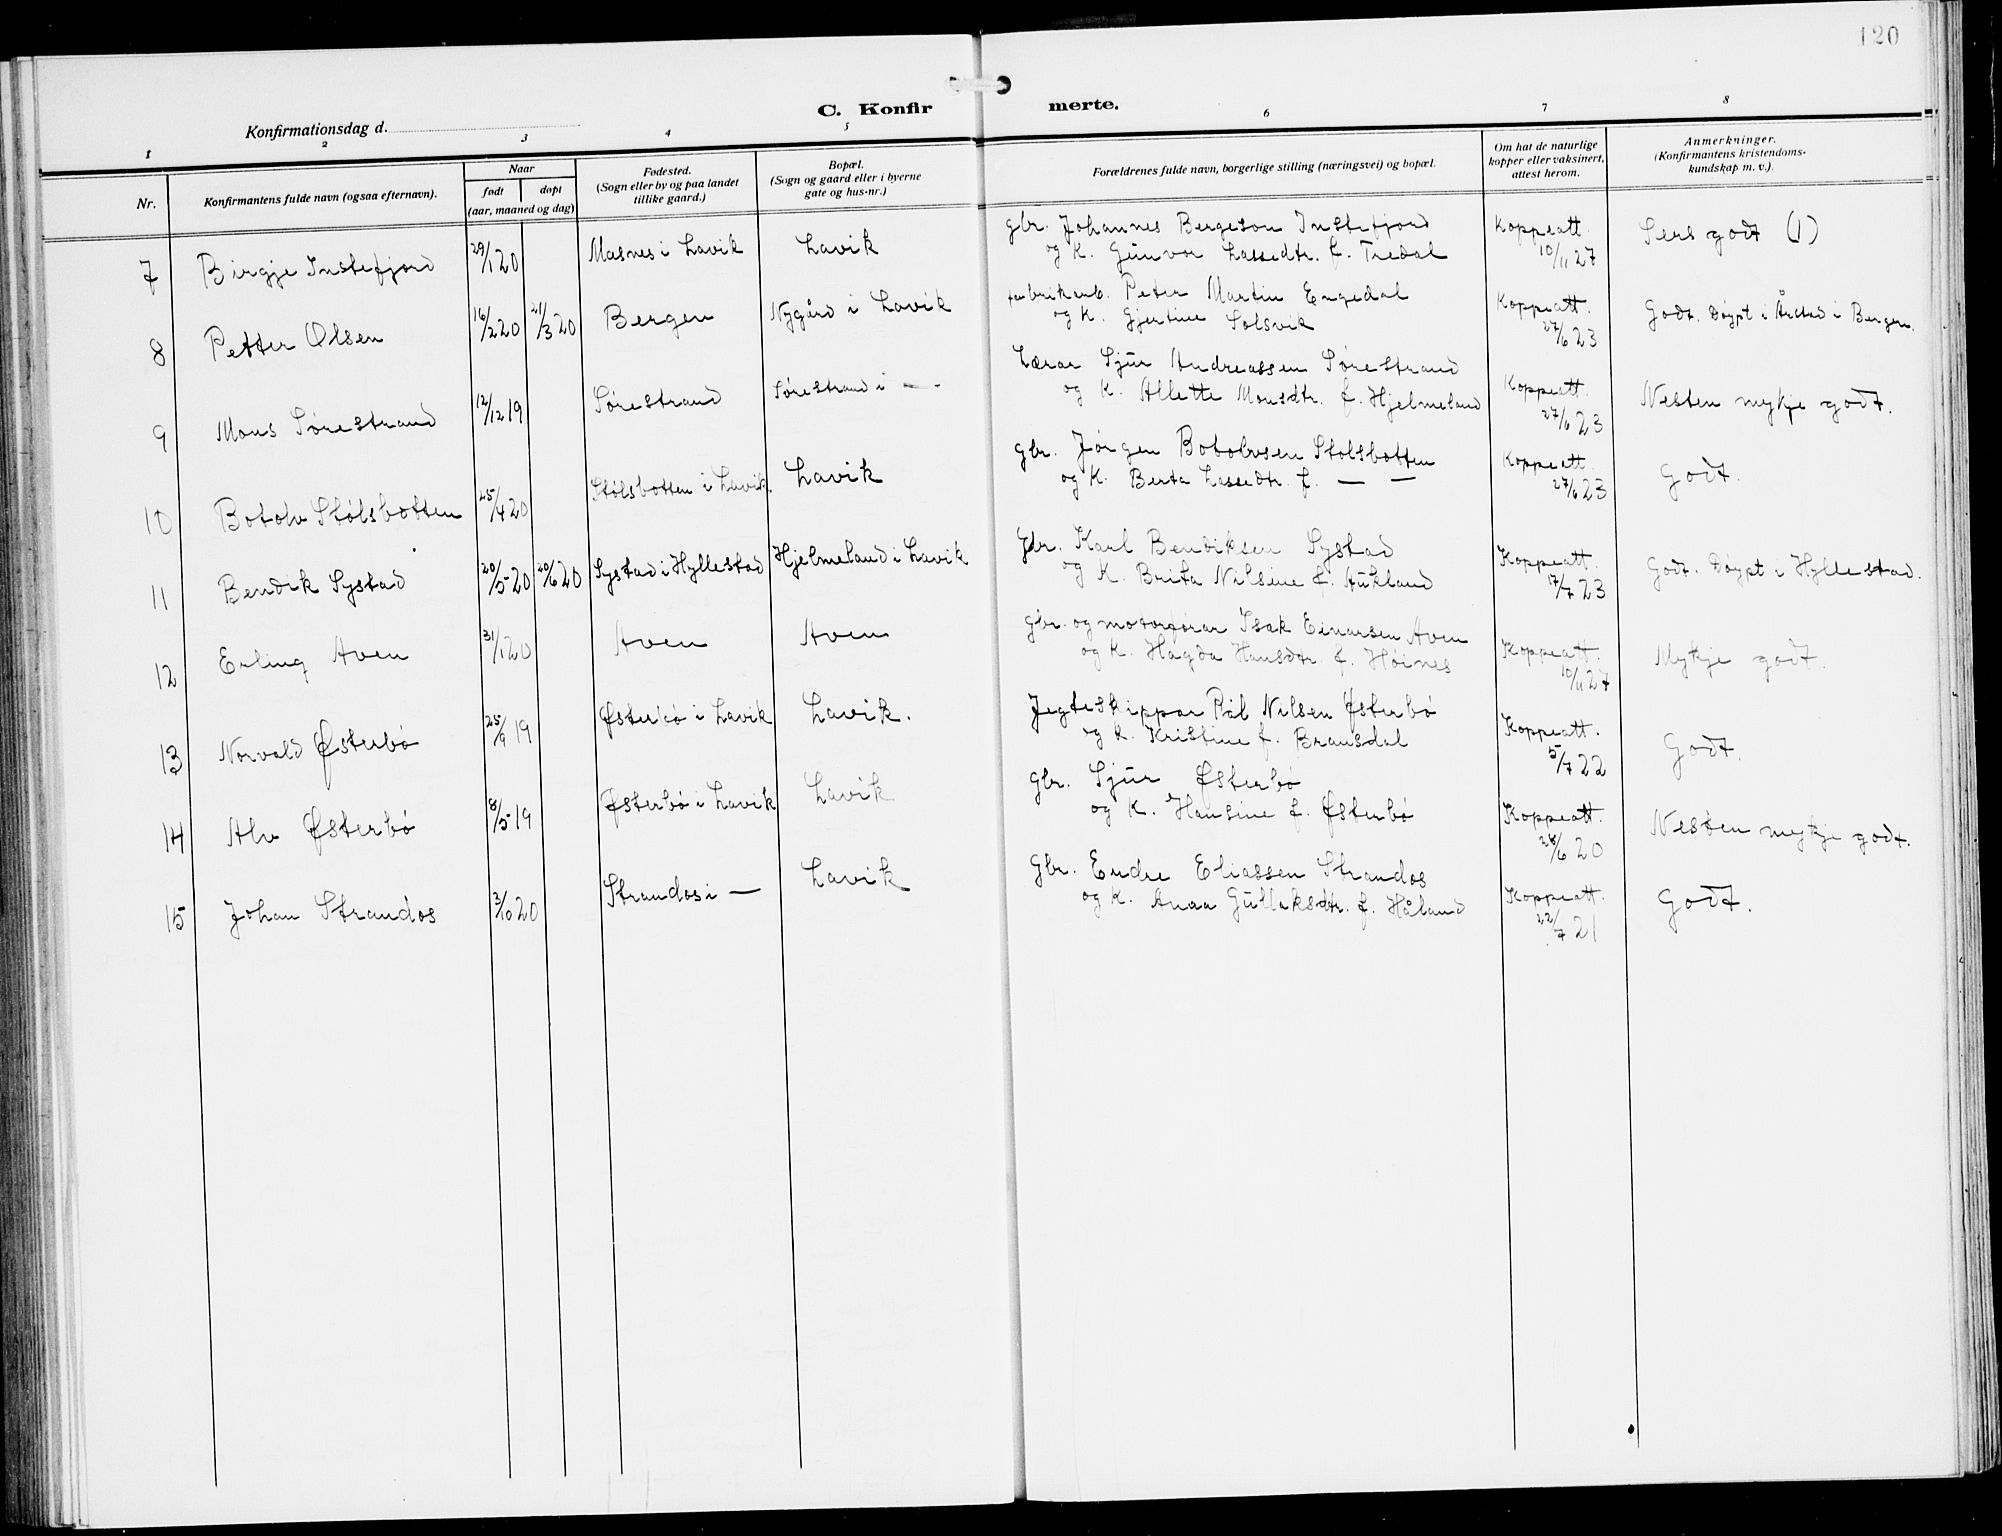 120
C. Konfir merte.
Konfirmationsdag d.
1 2 3 4 5 6 7 8
Nr.
Konfirmantens fulde navn (ogsaa efternavn).
Naar
født døpt
(aar, maaned og dag)
Fødested.
(Sogn eller by og paa landet
tillike gaard.)
Bopæl.
(Sogn og gaard eller i byerne
gate og hus-nr.)
Forældrenes fulde navn, borgerlige stilling (næringsvei) og bopæl.
Om hat de naturlige
kopper eller vaksinert,
attest herom.
Anmerkninger.
(Konfirmantens kristendoms-
kundskap m. v.).
7 Birgje Instefjord 29/1 20 Masnes i Lavik Lavik gbr. Johannes Bergeson Instefjord Koppeatt. Sers godt (1)
og K. Gunvor Lassedtr. f. Tredal 10/11 27
8 Petter Olsen 16/2 20 21/3 20 Bergen Nygård i Lavik fabrikarb. Peter Martin Engedal Koppeatt. Godt. Døypt i Årstad i Bergen.
og K. Gjertine Solsvik 27/6 23
9 Mons Sørestrand 12/12 19 Sørestrand Sørestrand i — Lærar Sjur Andreassen Sørestrand Koppeatt. Nesten mykje godt.
og K. Allette Monsdtr. f. Hjelmeland 27/6 23
10 Botolv Stølsbotten 25/4 20 Stølsbotten i Lavik. Lavik gbr. Jørgen Botolvsen Stølsbotten Koppeatt. Godt.
og K. Berta Lassedtr. f. — — 27/6 23
11 Bendik Systad 20/5 20 20/6 20 Systad i Hyllestad Hjelmeland i Lavik Gbr. Karl Bendiksen Systad Koppeatt. Godt. Døypt i Hyllestad.
og K. Brita Nilsine f. Aukland 17/7 23
12 Erling Aven 31/1 20 Aven Aven Gbr. og motorførar Isak Einarsen Aven Koppeatt. Mykje godt.
og K. Magda Hansdtr. f. Høines 10/11 27
13 Norvald Østerbø 25/9 19 Østerbø i Lavik Lavik. Jegteskippar Pål Nilsen Østerbø Koppeatt. Godt.
og K. Kristine f. Bransdal 5/7 22
14 Alv Østerbø 8/5 19 Østerbø i Lavik Lavik gbr. Sjur Østerbø Koppeatt. Nesten mykje godt.
og K. Hansine f. Østerbø 28/6 20
15 Johan Strandos 3/10 20 Strandos i — Lavik Gbr. Endre Eliassen Strandos Koppeatt. Godt.
og K. Anna Gullaksdtr. f. Håland 22/7 21